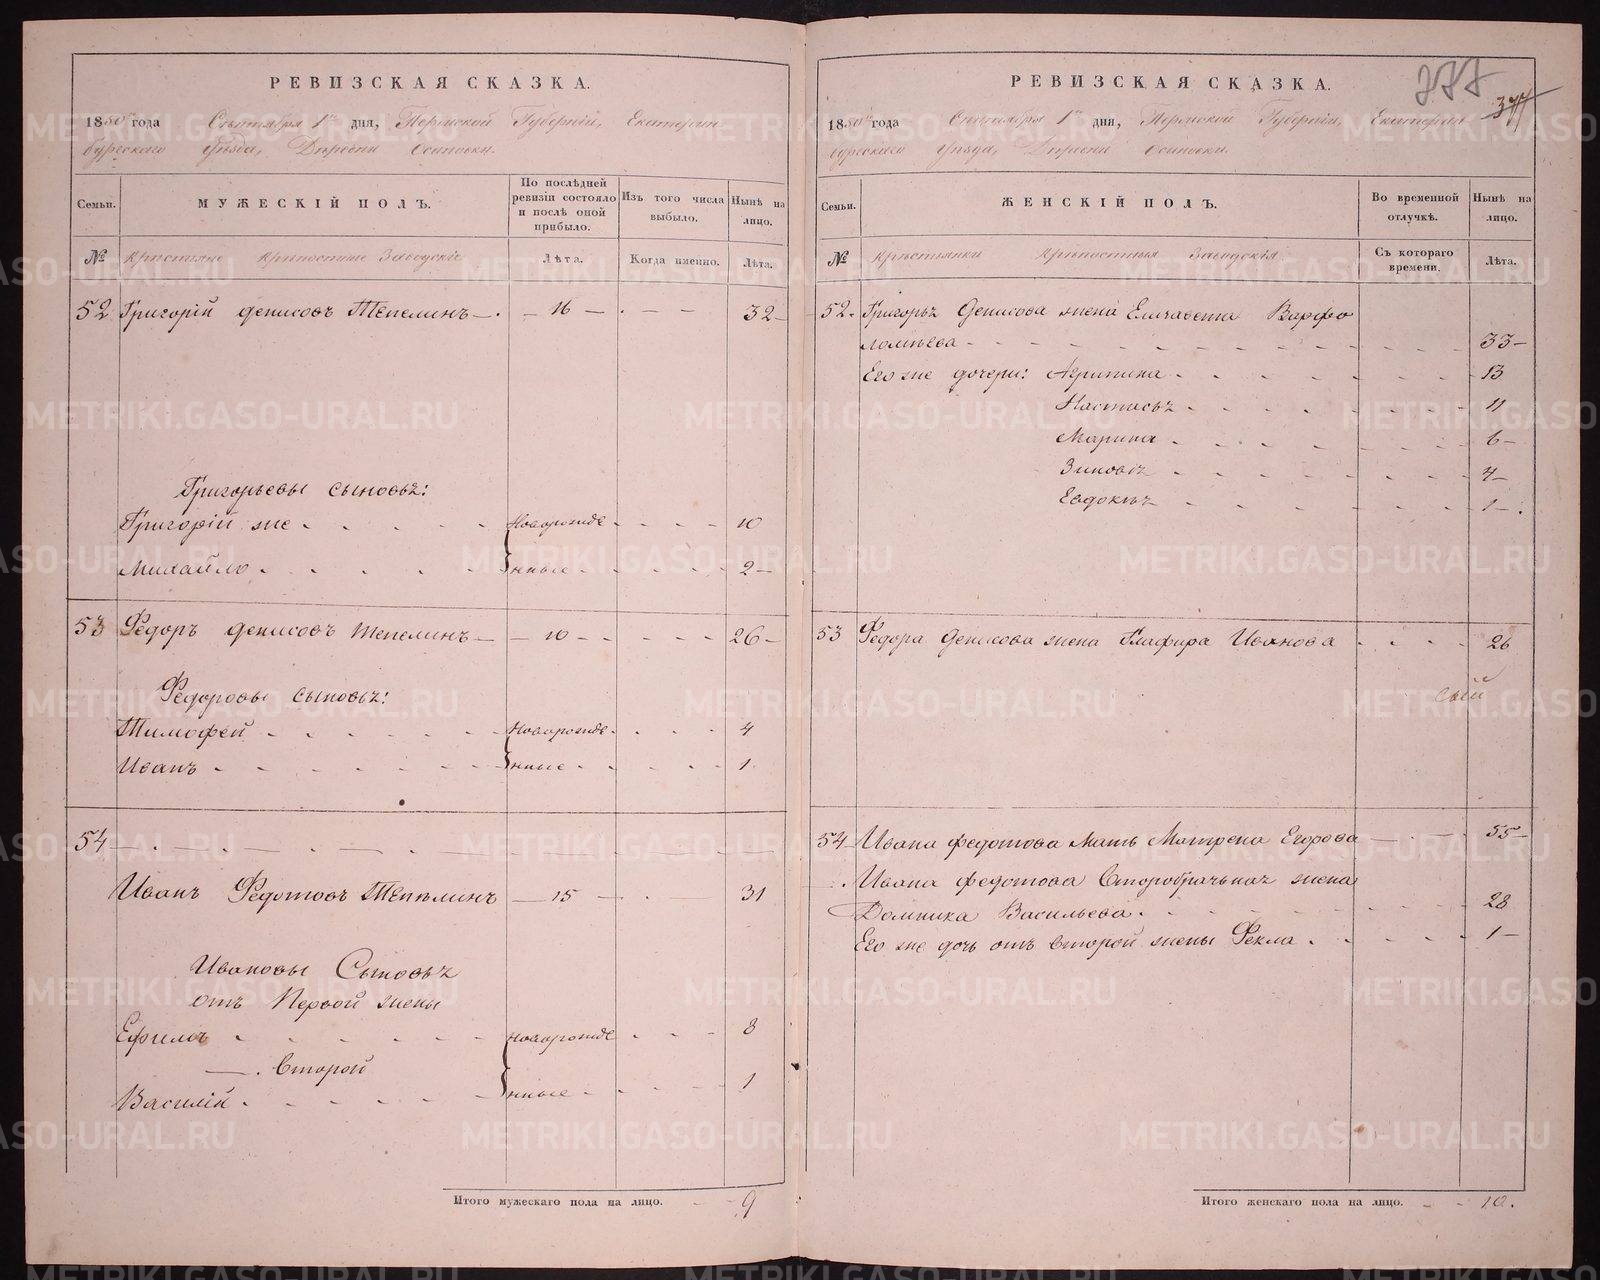 РЕВИЗСКАЯ СКАЗКА.
1850 года Сентября 1го дня, Пермской Губерніи, Екатерин
бургскаго Уѣзда, Деревни Осиновки.
Семьи.
МУЖЕСКІЙ ПОЛЪ.
По послѣдней ревизіи состояло и послѣ оной прибыло.
Изъ того числа выбыло.
Нынѣ на лицо.
№
Крестьяне Крѣпостные Заводскіе
Лѣта.
Когда именно.
Лѣта.
52 Григорій Денисовъ Тепелинъ — 16 — 32
Григорьевы сыновья:
Григорій же новорожде 10
Михайло нные 2
53 Федоръ Денисовъ Тепелинъ — 10 — 26
Федоровы сыновья:
Тимофей новорожде 4
Иванъ нные 1
54
Иванъ Федотовъ Тепелинъ — 15 — 31
Ивановы Сыновья
отъ Первой жены
Ефимъ новорожде 8
— Второй
Василій нные 1
Итого мужескаго пола на лицо. 9
377
377
РЕВИЗСКАЯ СКАЗКА.
1850 года Сентября 1го дня, Пермской Губерніи, Екатерин
бургскаго Уѣзда, Деревни Осиновки.
Семьи.
ЖЕНСКІЙ ПОЛЪ.
Во временной отлучкѣ.
Нынѣ на лицо.
№
Крестьянки Крѣпостныя Заводскія
Съ котораго времени.
Лѣта.
52. Григорья Денисова жена Елизавета Варфо
ломѣева 33
Его же дочери: Агрипина 13
Настасья 11
Марина 6
Зиновія 4
Евдокѣя 1
53 Федора Денисова жена Глафира Иванова 26
54 Ивана Федотова мать Матрена Егорова 55
Ивана Федотова Второбрачьная жена
Домника Васильева. 28
Его же дочь отъ второй жены Фекла. 1
Итого женскаго пола на лицо. 10.
METRIKI.GASO-URAL.RU